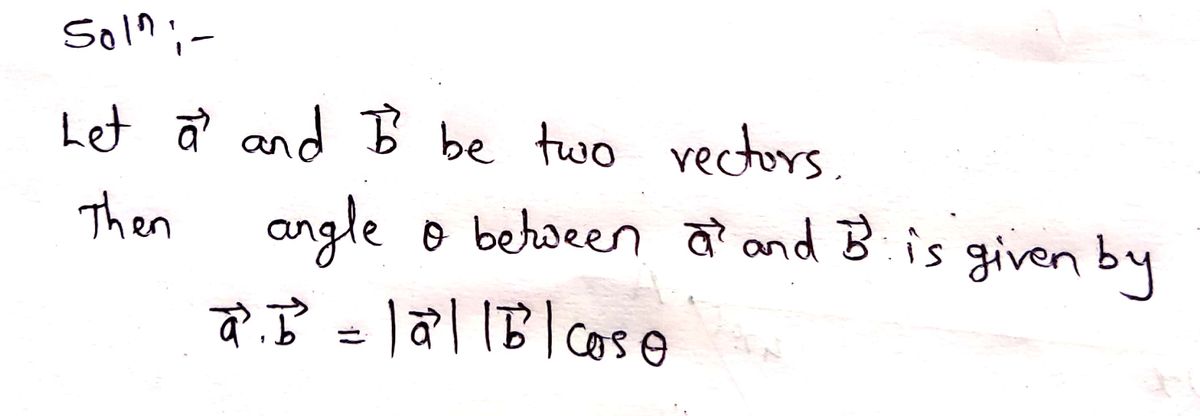 Solⁿ:-
Let a⃗ and b⃗ be two vectors.
Then angle θ between a⃗ and b⃗ is given by
a⃗.b⃗ = |a⃗| |b⃗| cosθ